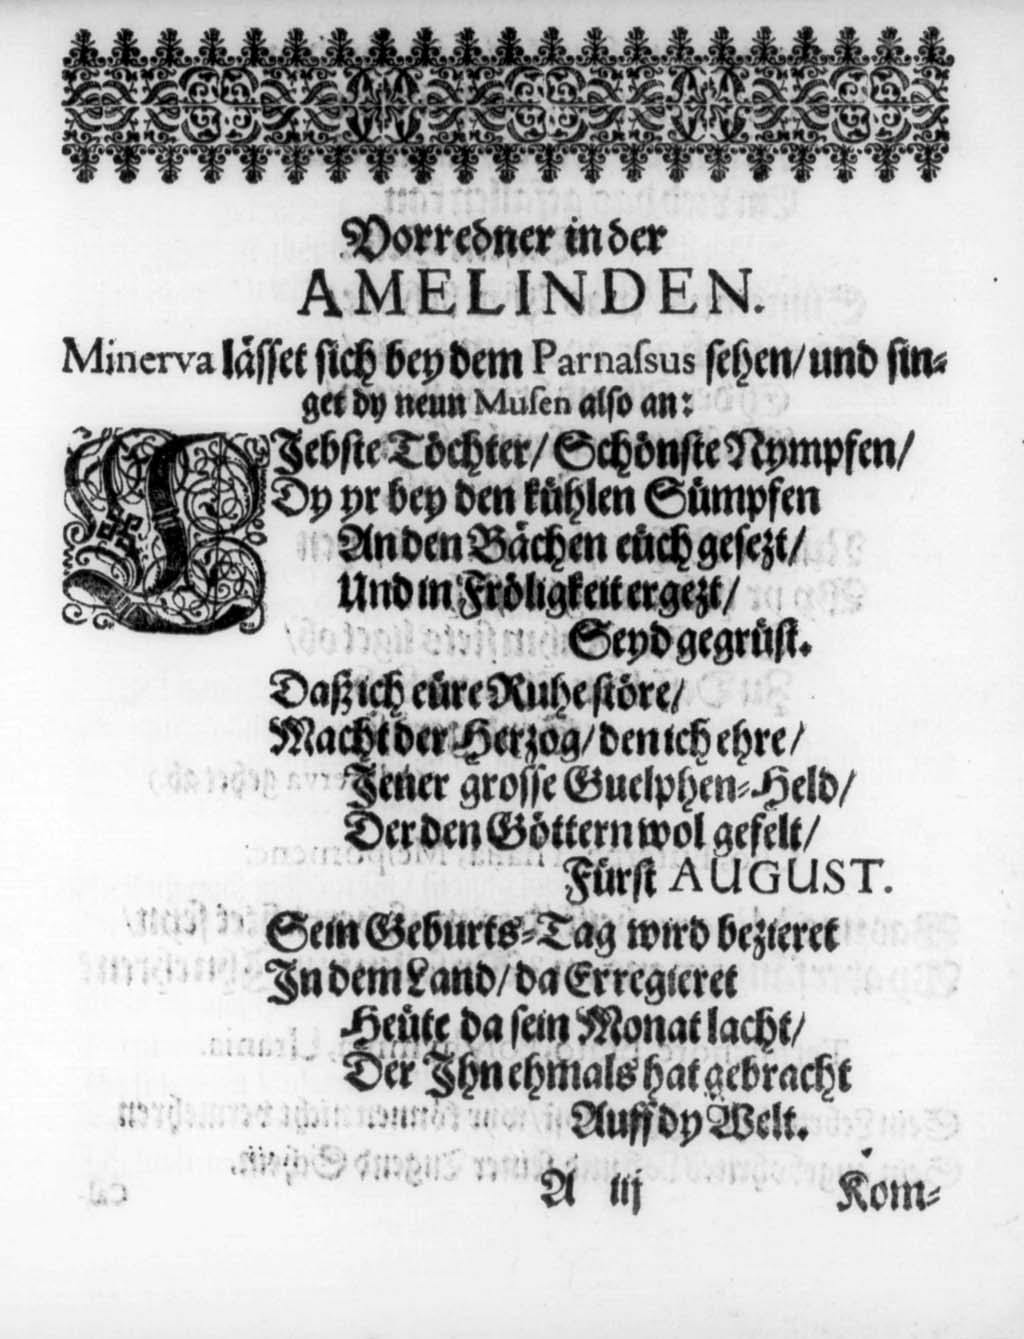 Vorredner in der
AMELINDEN.
Minerva lässet sich bey dem Parnassus sehen/ und sin-
get dy neun Musen also an:
LJebste Töchter/ Schönste Nympfen/
Dy yr bey den kühlen Sümpfen
An den Bächen eüch gesezt/
Und in Fröligkeit ergezt/
Seyd gegrüst.
Daß ich eüre Ruhe störe/
Macht der Herzog/ den ich ehre/
Jener grosse Guelphen-Held/
Der den Göttern wol gefelt/
Fürst AUGUST.
Sein Geburts-Tag wird bezieret
Jn dem Land/ da Er regieret
Heüte da sein Monat lacht/
Der Jhn ehmals hat gebracht
Auff dy Welt.
A iij Kom-